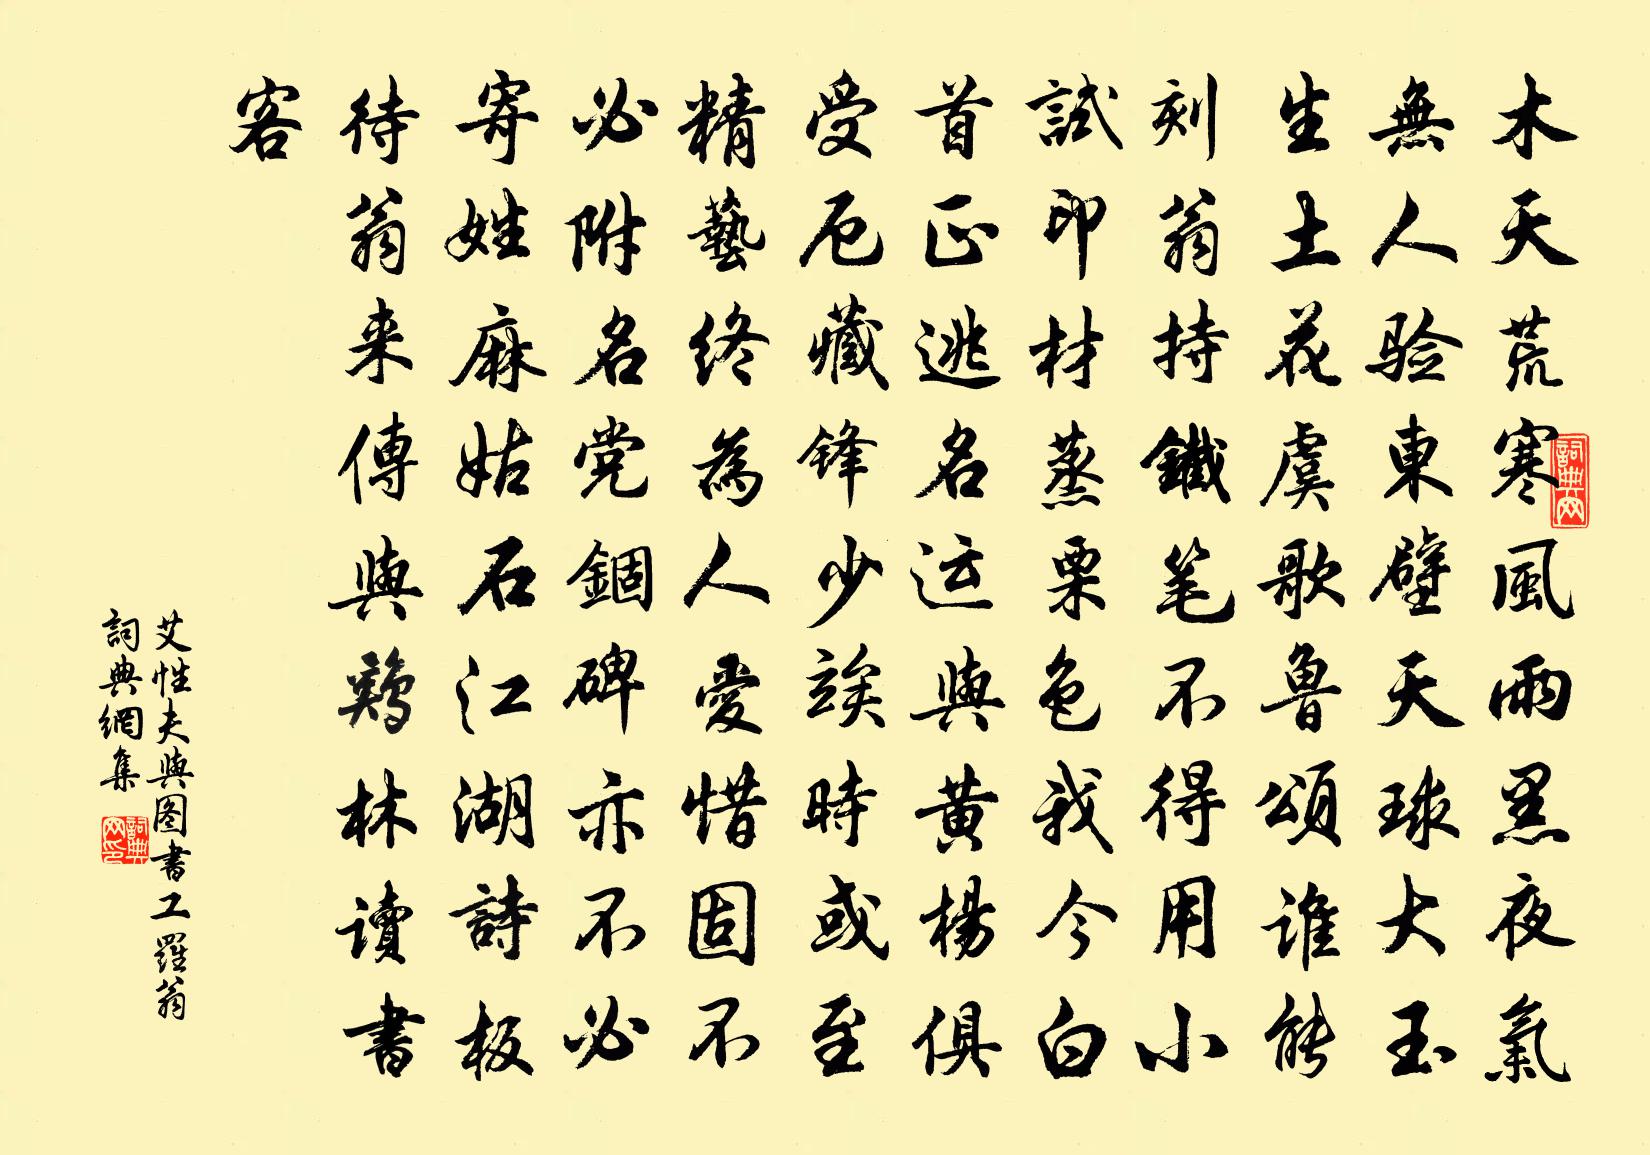 木天荒寒風雨黑夜氣
無人验東壁天球大玉
生土花虞歌鲁頌谁能
刻翁持鐵笔不得用小
試印材蒸栗色我今白
首正逃名运與黄楊俱
受厄藏锋少竢時或至
精藝终為人愛惜固不
必附名党錮碑亦不必
寄姓麻姑石江湖詩板
待翁来傳與鷄林读書
客
艾性夫與图書工羅翁
詞典網集
詞典网
詞典网印